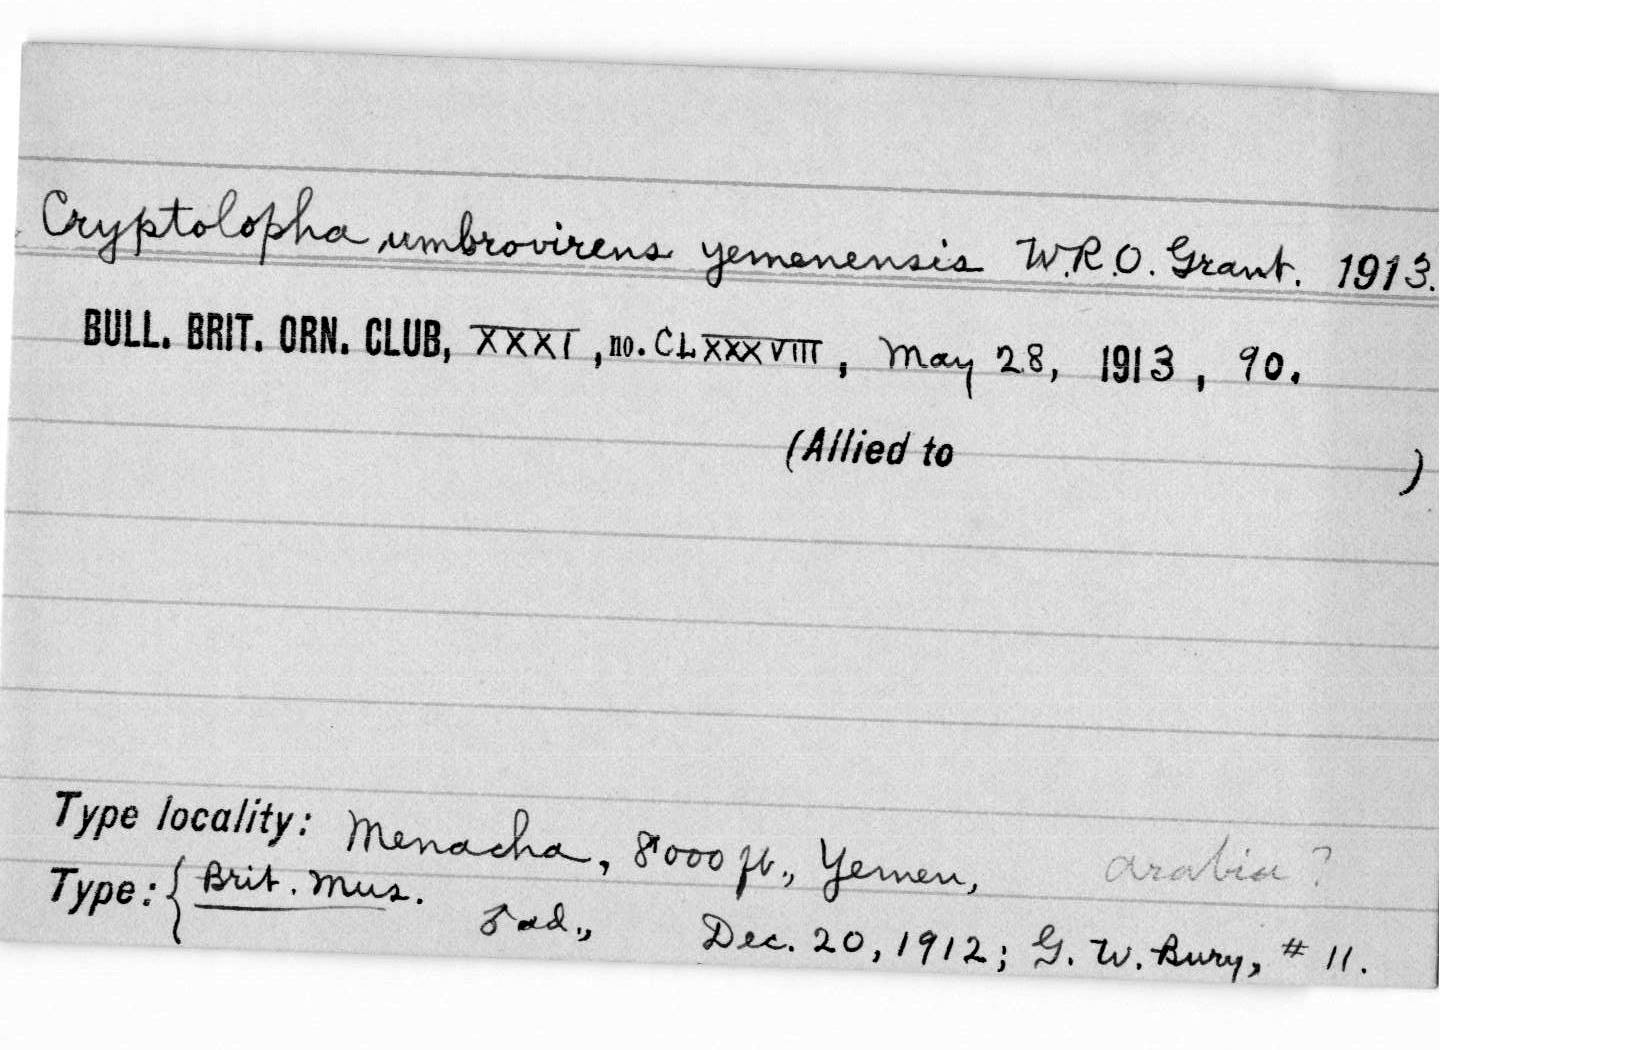 Cryptolopha umbrovirens yemenensis W.R.O. Grant. 1913.
BULL. BRIT. ORN. CLUB, XXXI, no. CLXXXVIII, May 28, 1913, 90.
(Allied to )
Type locality: Menacha, 8000 ft., Yemen, Arabia?
Type: { Brit. Mus. ♂ ad., Dec. 20, 1912; G. W. Bury, # 11.